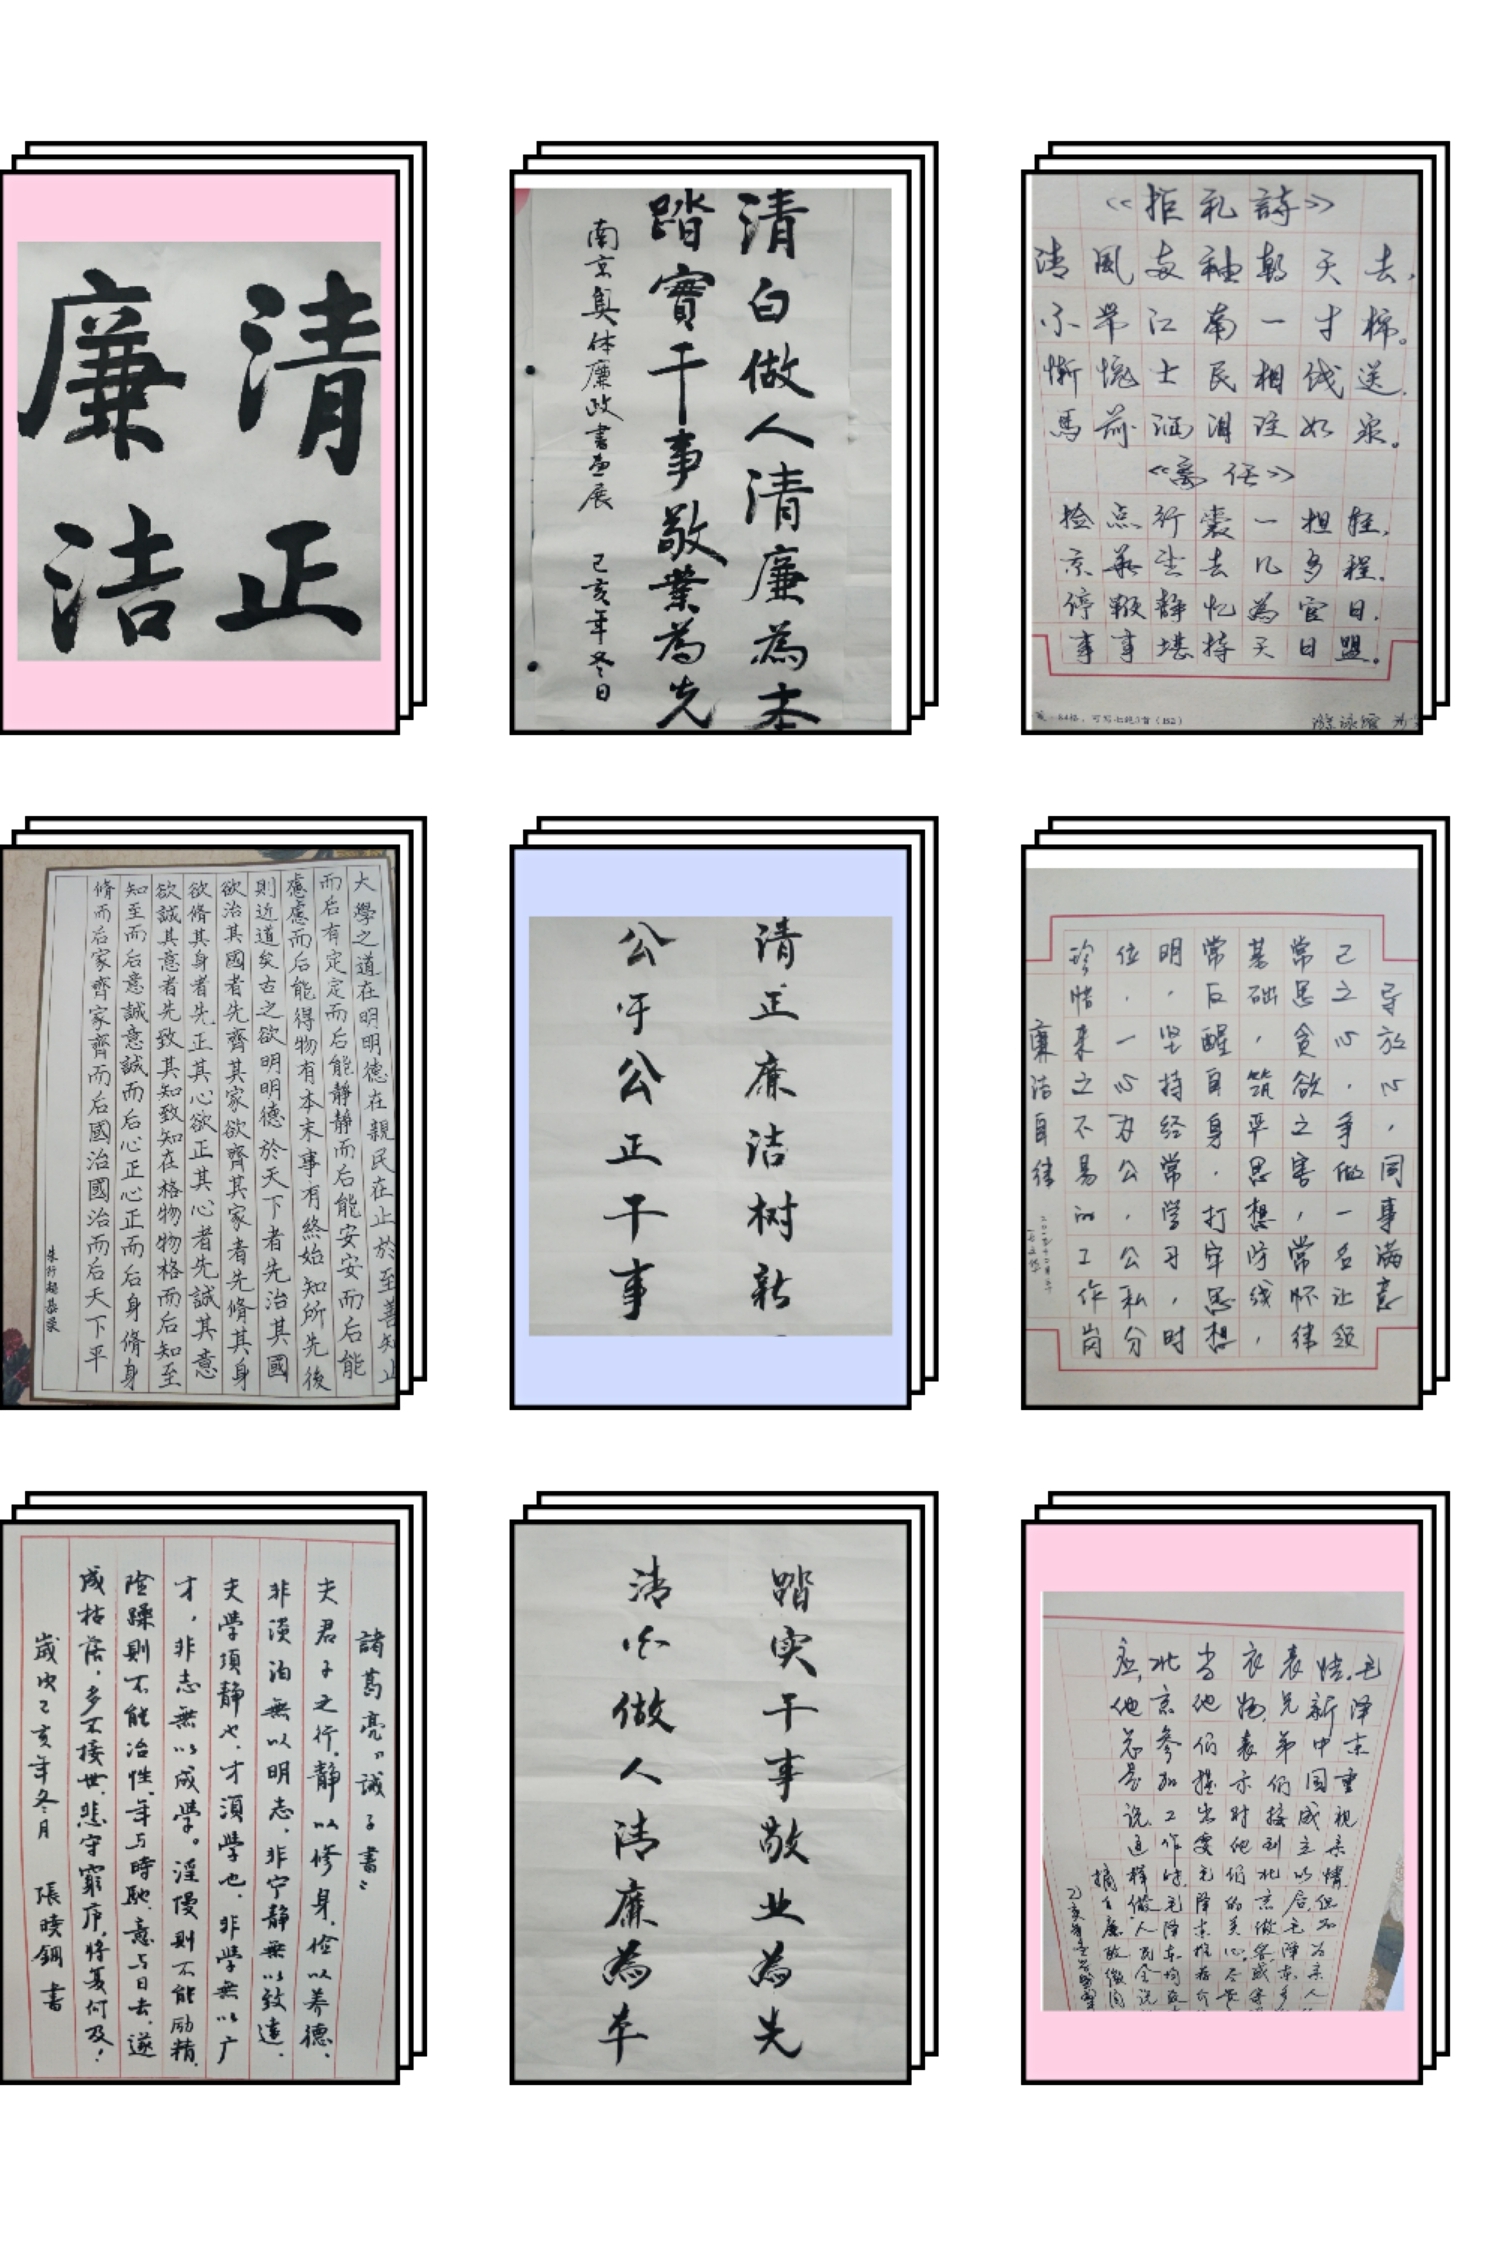 清正
廉洁
清白做人清廉為本
踏實干事敬業為先
南京奥体廉政書画展 己亥年冬日
《拒礼詩》
清風两袖朝天去,
不带江南一寸棉。
慚愧士民相饯送,
馬前洒泪注如泉。
《离任》
检点行囊一担轻,
京华望去几多程.
停鞭静忆為官日,
事事堪持天日盟。
格，可写七绝3首（152）
游泳馆
大學之道在明明德在親民在止於至善知止
而后有定定而后能静静而后能安安而后能
慮慮而后能得物有本末事有終始知所先後
則近道矣古之欲明明德於天下者先治其國
欲治其國者先齊其家欲齊其家者先脩其身
欲脩其身者先正其心欲正其心者先誠其意
欲誠其意者先致其知致知在格物物格而后知至
知至而后意誠意誠而后心正心正而后身脩身
脩而后家齊家齊而后國治國治而后天下平
清正廉洁树新
公平公正干事
廉洁自律
珍惜来之不易的工作岗
位.一心为公,公私分
明,坚持经常学习,时
常反醒自身.打牢思想
基础,筑严思想防线,
常思贪欲之害,常怀律
己之心,争做一名让领
导放心,同事满意
諸葛亮"誡子書"
夫君子之行,静以修身,俭以养德,
非淡泊無以明志,非宁静無以致遠.
夫學須静也,才須學也,非學無以广
才,非志無以成學。淫慢則不能励精,
险躁則不能冶性,年与時馳,意与日去,遂
成枯落,多不接世,悲守窮庐,將复何及!
歲次己亥年冬月 張曉鋼書
踏实干事敬业為先
清白做人清廉為本
毛泽东重视亲情,但不为亲人
情.新中国成立以后,毛泽东多
表兄弟们接到北京做客,或寄
衣物,表示对他们的关心.尽管
当他们提出要毛泽东推荐介
北京参加工作时,毛泽东均
应,他总是说:通样做,人民会说
摘自廉政微阅